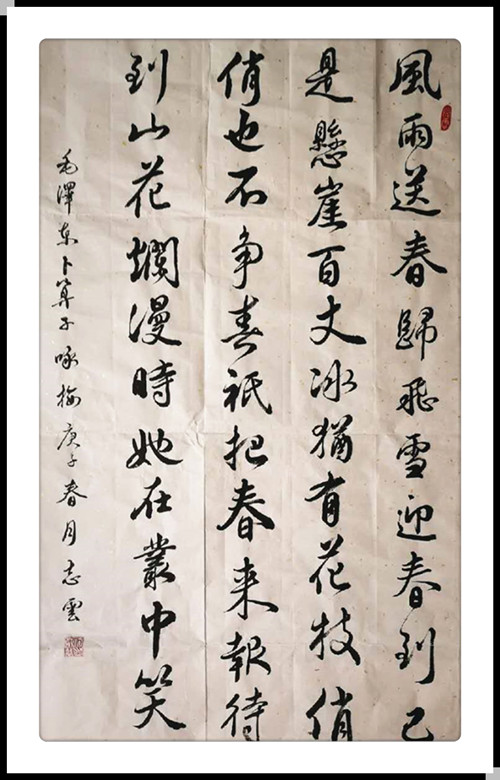 風雨送春歸飛雪迎春到已
是懸崖百丈冰猶有花枝俏
俏也不争春祇把春来報待
到山花爛漫時她在叢中笑
毛澤东卜算子咏梅庚子春月志雲